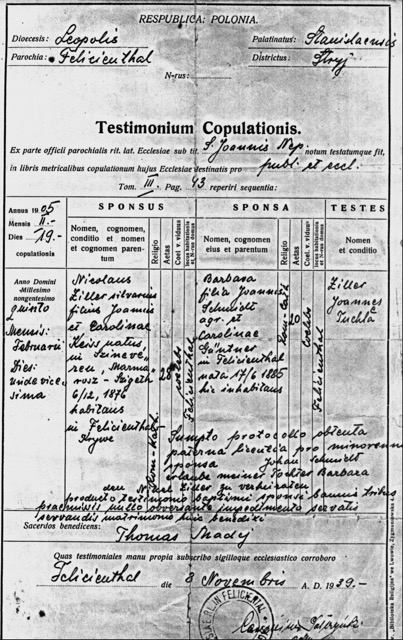 RESPUBLICA: POLONIA.
Dioecesis: Leopolis
Palatinatus: Stanislaensis
Parochia: Felicienthal
Districtus: Stryj
N-rus:
Testimonium Copulationis.
Ex parte officii parochialis rit. lat. Ecclesiae sub tit. S. Joannis Nep. notum testatumque fit,
in libris metricalibus copulationum hujus Ecclesiae destinatis pro publ. et eccl.
Tom. III. Pag. 43 reperiri sequentia:
Annus 1905
Mensis II.-
Dies 19.-
copulationis
SPONSUS
Nomen, cognomen, conditio et nomen et cognomen parentum
Religio
Aetas
Coel. v. viduus
locus habitationis et N-rus domus
SPONSA
Nomen, cognomen, eius et parentum
Religio
Aetas
Coel. v. viduus
locus habitationis et N-rus domus
TESTES
Nomen et conditio
Anno Domini
Millesimo
nongentesimo
quinto
Mensis
Februarii
Dies
undevice
sima
Nicolaus
Ziller silvarius
filius Joannis
et Carolinae
Keiss natus,
in Szineve-
ren, Marma-
rosz-Szigeth
6/12, 1876
habitans
in Felicienthal
Hryve
Rom.-Kath.
28
coelebs
Felicienthal
Barbara
filia Joannis
Schmidt
agr. et
Carolinae
Güntner
in Felicienthal
nata 17/6 1885
hic inhabitans
Rom.-Kath.
coelebs
Felicienthal
Ziller
Joannes
Tuchla
Sumpto protocollo obtenta
paterna licentia pro minorenni
sponsa Johan Schmidt
erlaube meiner Tochter Barbara
den Ziller zu verheiraten
producto testimonio baptismi sponsi bannis tribus
praemissis nullo obversante impedimento servatis
servandis matrimonio huic benedixi
Sacerdos benedicens:
Thomas Mady
Quas testimoniales manu propia subscribo sigilloque ecclesiastico corroboro
Felicienthal die 8 Novembris A. D. 1939.-